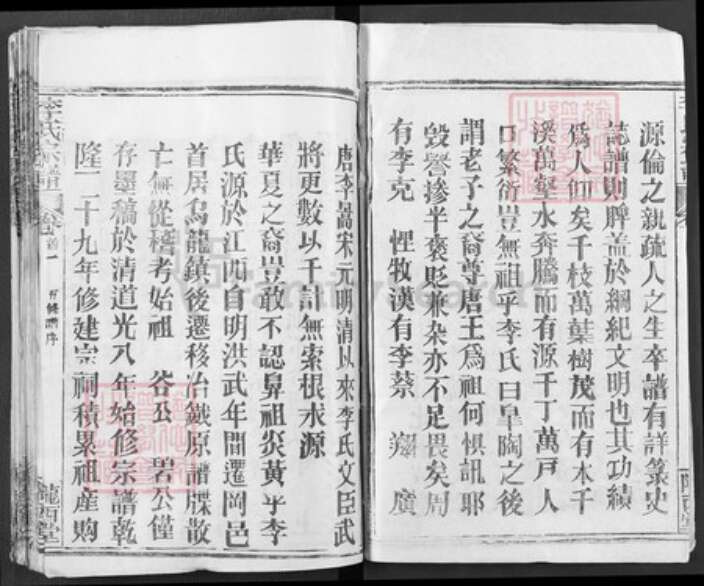 源倫之親疏人之生卒譜有詳策史
誌譜則脾盖於綱紀文明也其功績
爲人何矣千枝萬葉樹茂而有本千
溪萬壑水奔騰而有源千丁萬戸人
口繁衍豈無祖乎李氏曰皐陶之後
謂老子之裔尊唐王爲祖何懼訊耶
毀譽摻半褒貶兼杂亦不足畏矣周
有李克 悝牧漢有李蔡 翔 廣
唐李嵩宋元明清以來李氏文臣武
將更數以千計無索根求源
華夏之裔豈敢不認鼻祖炎黃乎李
氏源於江西自明洪武年間遷岡邑
首居烏龍鎮後遷移冶鐵原譜牒散
亡無從稽考始祖 谷公 碧公僅
存墨稿於清道光八年始修宗譜乾
隆二十九年修建宗祠積累祖產購
李氏宗譜 卷首一 修譜序 隴西堂